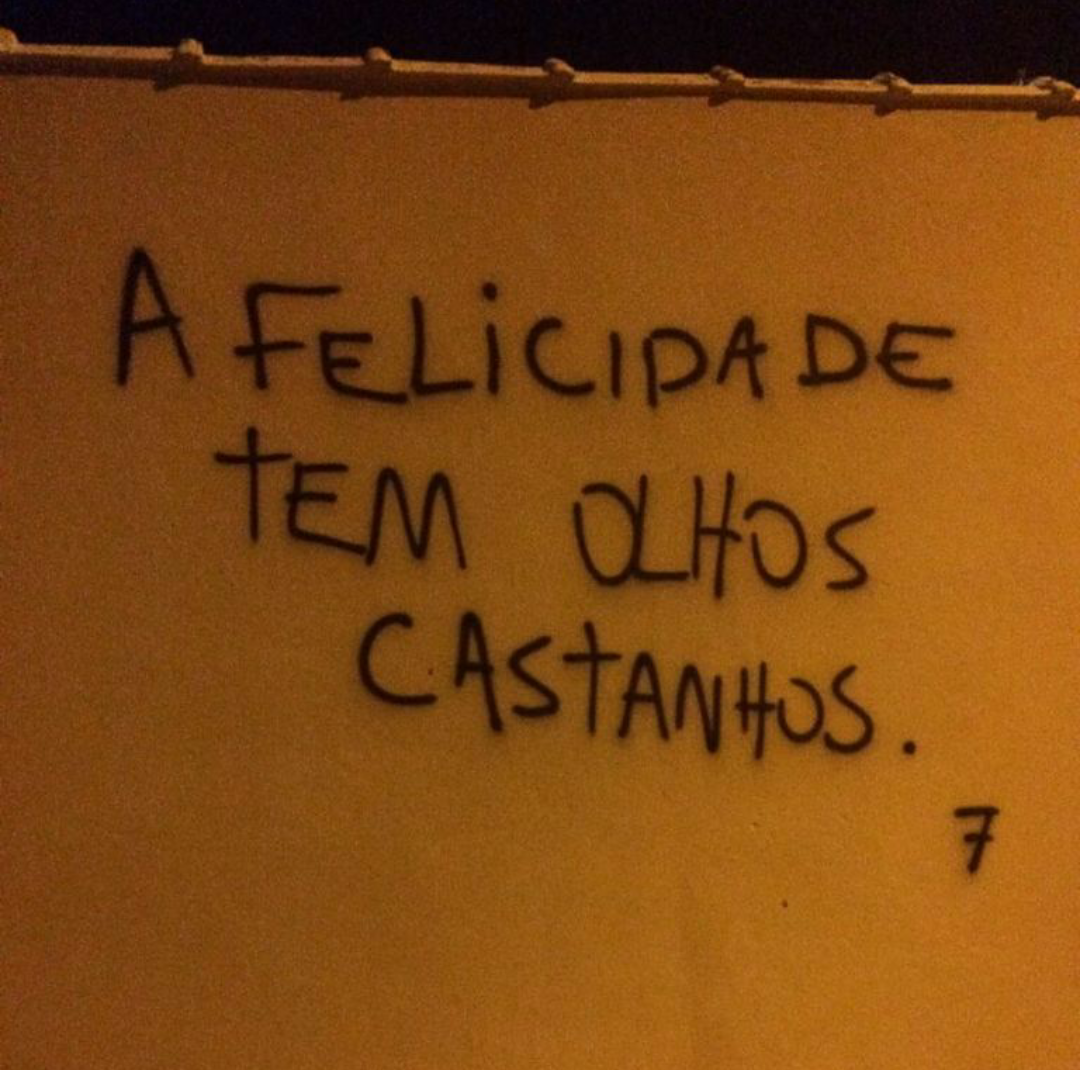 A FELiCIDADE
TEM OLHOS
CASTANHOS.
7